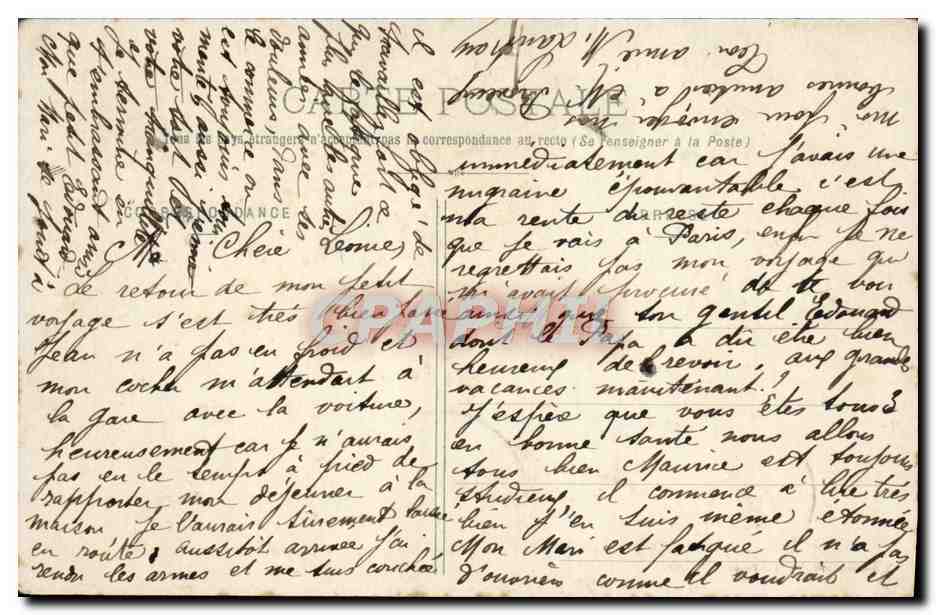 CARTE POSTALE
Tous les pays étrangers n'acceptent pas la correspondance au recto (Se renseigner à la Poste)
CORRESPONDANCE
ADRESSE
CPAPHIL
Chère Léonie,
Le retour de mon petit
voyage s'est très bien passé
Jean n'a pas eu froid et
mon cocher m'attendait à
la gare avec la voiture,
heureusement car je n'aurais
pas eu le temps à pied de
rapporter mon déjeuner à la
maison je l'aurais sûrement laissé
en route, aussitôt arrivée j'ai
rendu les armes et me suis couchée
immédiatement car j'avais une
migraine épouvantable c'est
ma rente du reste chaque fois
que je vais à Paris, enfin je ne
regrettais pas mon voyage qui
m'avait procuré de te voir
ainsi que ton gentil Edouard
dont le Papa a dû être bien
heureux de revoir, aux grandes
vacances maintenant!
J'espère que vous êtes tous 3
en bonne santé nous allons
tous bien Maurice est toujours
studieux il commence à lire très
bien j'en suis même etonnée
Mon Mari est fatigué il n'a pas
d'ouvriers comme il voudrait et
il est obligé de
travailler
plus que les autres
douleurs, dans
est toujours
que petit Edouard
d'embrassant ainsi
je termine en
votre
Mr pour envoyer nos
bonnes amitiés à Mr
Ton amie M.